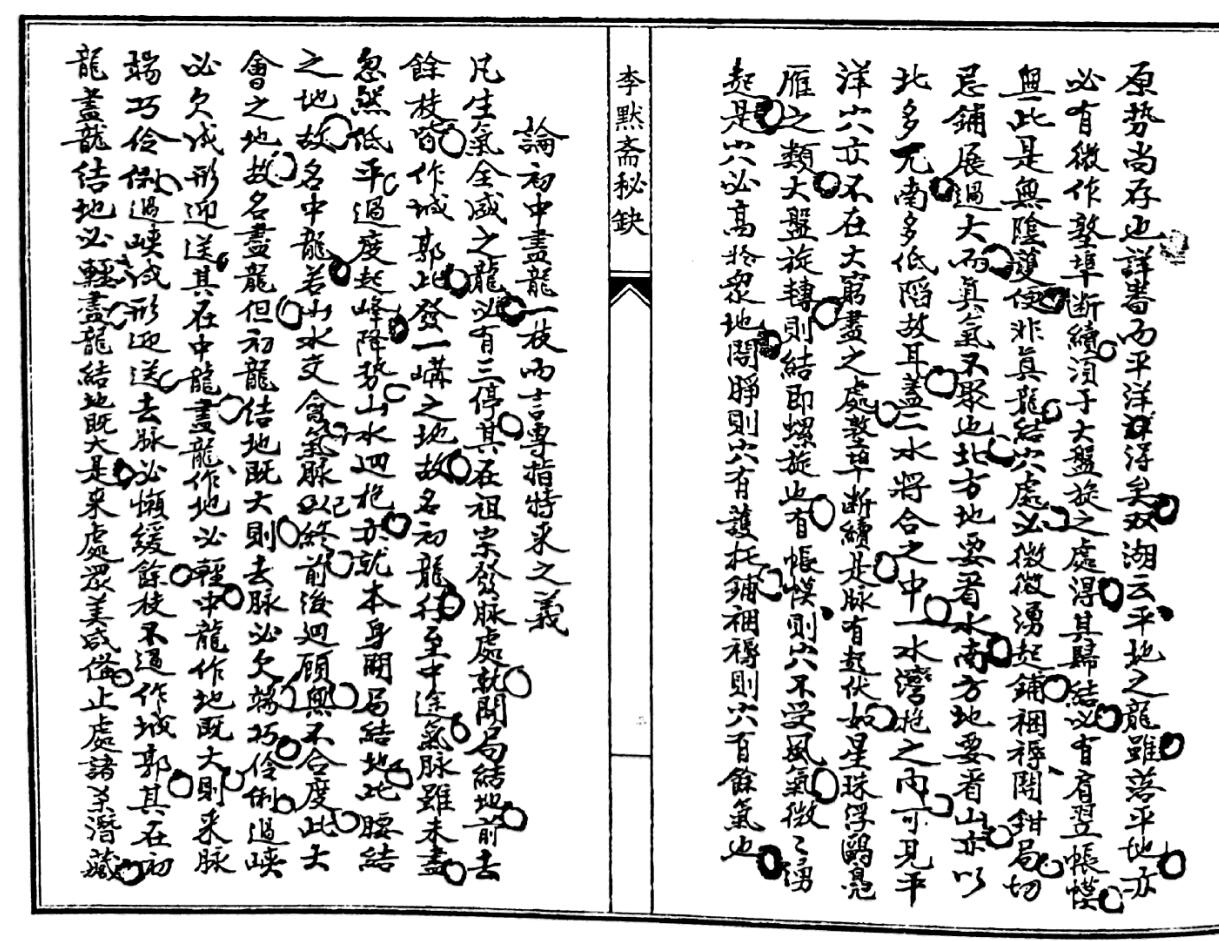 原勢尚存也詳看而平洋自得矣双湖云平地之龍雖落平地亦
必有微作墪埠断續湏于大盤旋之處得其歸結必有肩翌帳幙
無此是無隂護便非真龍結穴處必微微湧起鋪裀褥開鉗局切
忌鋪展過大而真氣不聚也北方地要看水南方地要看山亦以
北多亢南多低陷故耳蓋二水將合之中一水灣抱之内可見平
洋穴亦不在大窮盡之處墪埠断續是脉有起伏如星珠浮鷗亮
雁之類大盤旋轉則結即螺旋也有帳幙則穴不受風氣微〻湧
起是穴必高於衆地開睜則穴有護托鋪裀褥則穴有餘氣也
李默斋秘鈌
論初中盡龍一枝而言專指特来之義
凡生氣全盛之龍必有三停其在祖宗發脉處就開局結地前去
餘枝皆作城郭此發一嶙之地故名初龍行至中途氣脉雖未盡
忽然低平過度起峰降勢山水迴抱亦就本身開局結地此腰結
之地故名中龍若山水交會氣脉以終前後迴顧無不合度此大
會之地故名盡龍但初龍结地既大則去脉必欠端巧伶俐過峡
必欠成形迎送其在中龍盡龍作地必輕中龍作地既大則来脉
端巧伶俐過峡成形迎送去脉必懶緩餘枝不過作城郭其在初
龍盡龍结地必輕盡龍結地既大是来處衆美咸俻止處諸羊潛藏